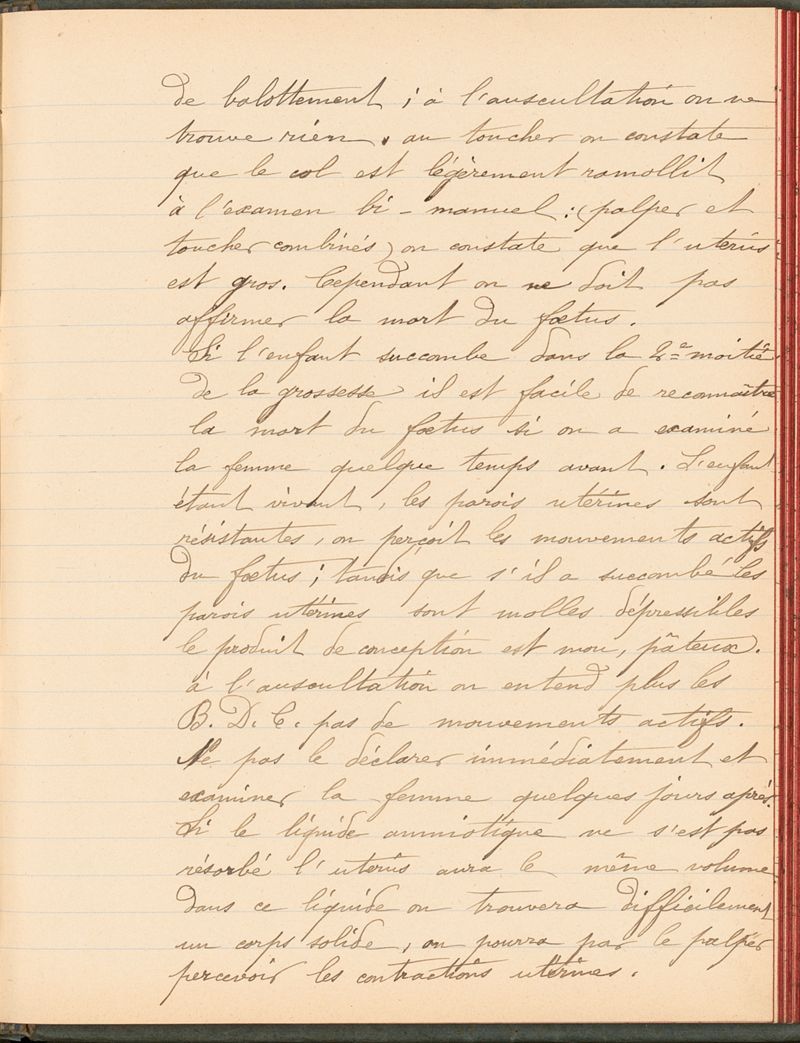 de balottement ; à l'auscultation on ne
trouve rien. au toucher on constate
que le col est légèrement ramollit
à l'examen bi-manuel : (palper et
toucher combinés) on constate que l'utérus
est gros. Cependant on ne doit pas
affirmer la mort du fœtus.
Si l'enfant succombe dans la 2e moitié
de la grossesse il est facile de reconnaître
la mort du fœtus si on a examiné
la femme quelque temps avant. L'enfant
étant vivant, les parois utérines sont
résistantes, on perçoit les mouvements actifs
du fœtus ; tandis que s'il a succombé les
parois utérines sont molles dépressibles
le produit de conception est mou, pâteux.
à l'auscultation on entend plus les
B. D. C. pas de mouvements actifs.
Ne pas le déclarer immédiatement et
examiner la femme quelques jours après.
Si le liquide amniotique ne s'est pas
résorbé l'utérus aura le même volume
dans ce liquide on trouvera difficilement
un corps solide, on pourra par le palper
percevoir les contractions utérines.